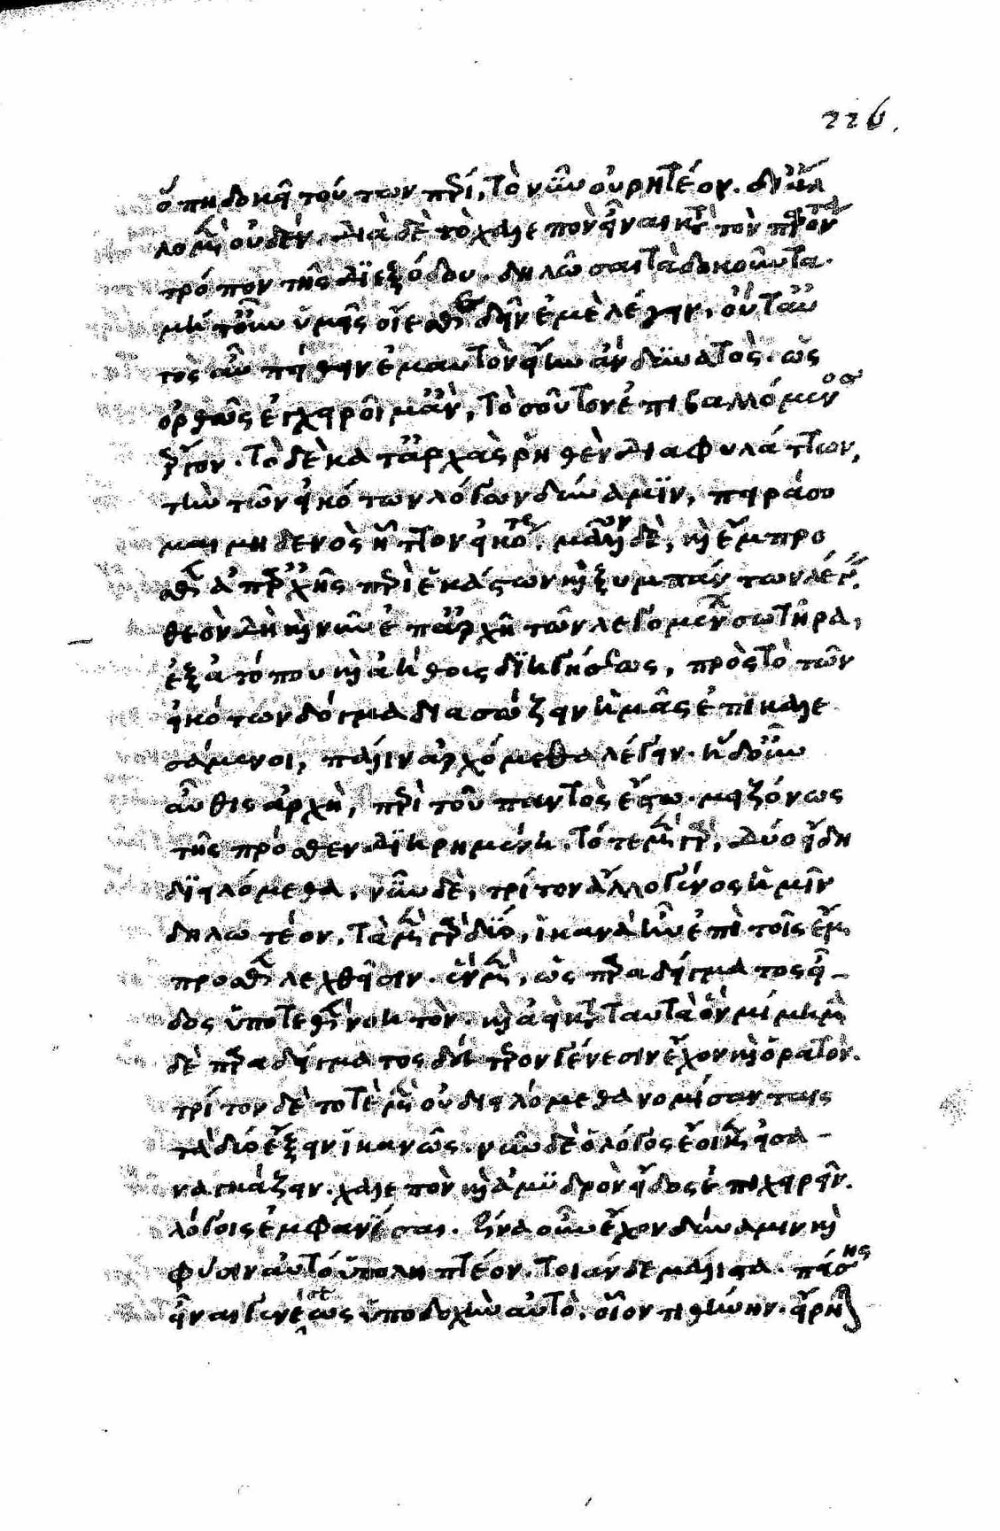 226.
ὅπῃ δοκεῖ τούτων πέρι, τὸ νῦν οὐ ῥητέον. δι' ἄλ
λο μὲν οὐδέν. διὰ δὲ τὸ χαλεπὸν εἶναι κατὰ τὸν παρόντα
τρόπον τῆς διεξόδου. δηλῶσαι τὰ δοκοῦντα.
μήτ' οὖν ὑμεῖς οἴεσθε δεῖν ἐμὲ λέγειν. οὔτ' αὐ
τὸς αὖ πείθειν ἐμαυτὸν εἴην ἂν δυνατὸς. ὡς
ὀρθῶς ἐγχειροῖμ' ἂν, τοσοῦτον ἐπιβαλλόμενος
ἔργον. τὸ δὲ κατ' ἀρχὰς ῥηθὲν διαφυλάττων,
τὴν τῶν εἰκότων λόγων δύναμιν, πειράσο
μαι μηδενὸς ἧττον εἰκότα. μᾶλλον δὲ, καὶ ἔμπρο
σθεν ἀπ' ἀρχῆς περὶ ἑκάστων καὶ ξυμπάντων λέγειν.
θεὸν δὴ καὶ νῦν ἐπ' ἀρχῇ τῶν λεγομένων σωτῆρα,
ἐξ ἀτόπου καὶ ἀήθους διηγήσεως, πρὸς τὸ τῶν
εἰκότων δόγμα διασώζειν ἡμᾶς ἐπικαλε
σάμενοι, πάλιν ἀρχόμεθα λέγειν. ἡ δ' οὖν
αὖθις ἀρχὴ, περὶ τοῦ παντὸς ἔστω. μειζόνως
τῆς πρόσθεν διῃρημένη. τότε μὲν γὰρ, δύο εἴδη
διειλόμεθα, νῦν δὲ, τρίτον ἄλλο γένος ἡμῖν
δηλωτέον. τὰ μὲν γὰρ δύο, ἱκανὰ ἦν ἐπὶ τοῖς ἔμ
προσθεν λεχθεῖσιν. ἓν μὲν, ὡς παραδείγματος εἶ
δος ὑποτεθὲν νοητὸν. καὶ ἀεὶ κατὰ ταυτὰ ὂν μίμημα
δὲ παραδείγματος δεύτερον γένεσιν ἔχον καὶ ὁρατὸν.
τρίτον δὲ τότε μὲν οὐ διειλόμεθα νομίσαντες
τὰ δύο ἕξειν ἱκανῶς. νῦν δὲ ὁ λόγος ἔοικεν εἰσα
ναγκάζειν. χαλεπὸν καὶ ἀμυδρὸν εἶδος ἐπιχειρεῖν.
λόγοις ἐμφανίσαι. τίνα οὖν ἔχον δύναμιν καὶ
φύσιν αὐτὸ ὑποληπτέον. τοιάνδε μάλιστα. πάσης
εἶναι γενέσεως ὑποδοχὴν αὐτὸ. οἷον τιθήνην. εἴρηται